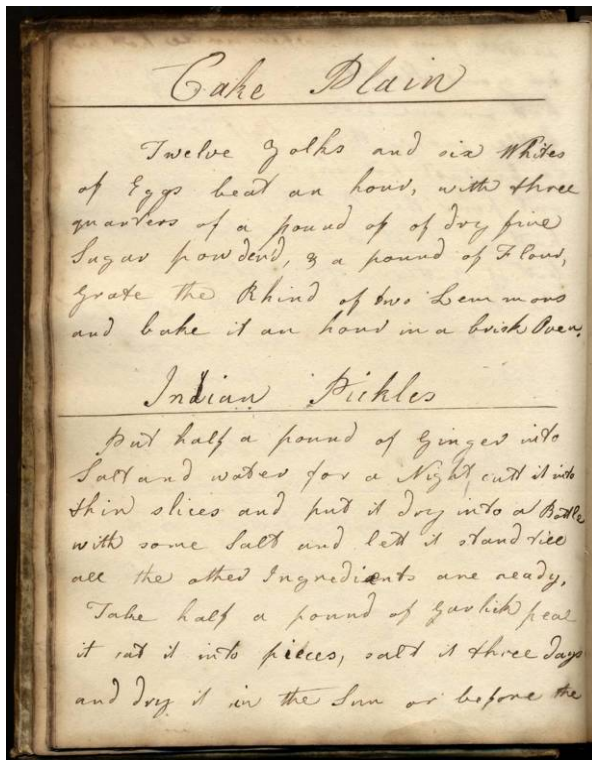 Cake Plain
Twelve Yolks and six Whites
of Eggs beat an hour, with three
quarters of a pound of of dry fine
Sugar powderd, & a pound of Flour,
grate the Rhind of two Lemmons
and bake it an hour in a brisk Oven.
Indian Pickles
Put half a pound of Ginger into
Salt and water for a Night, cutt it into
thin slices and put it dry into a Bottle
with some Salt and lett it stand till
all the other Ingredients are ready,
Take half a pound of Garlick peal
it cut it into pieces, salt it three days
and dry it in the Sun or before the